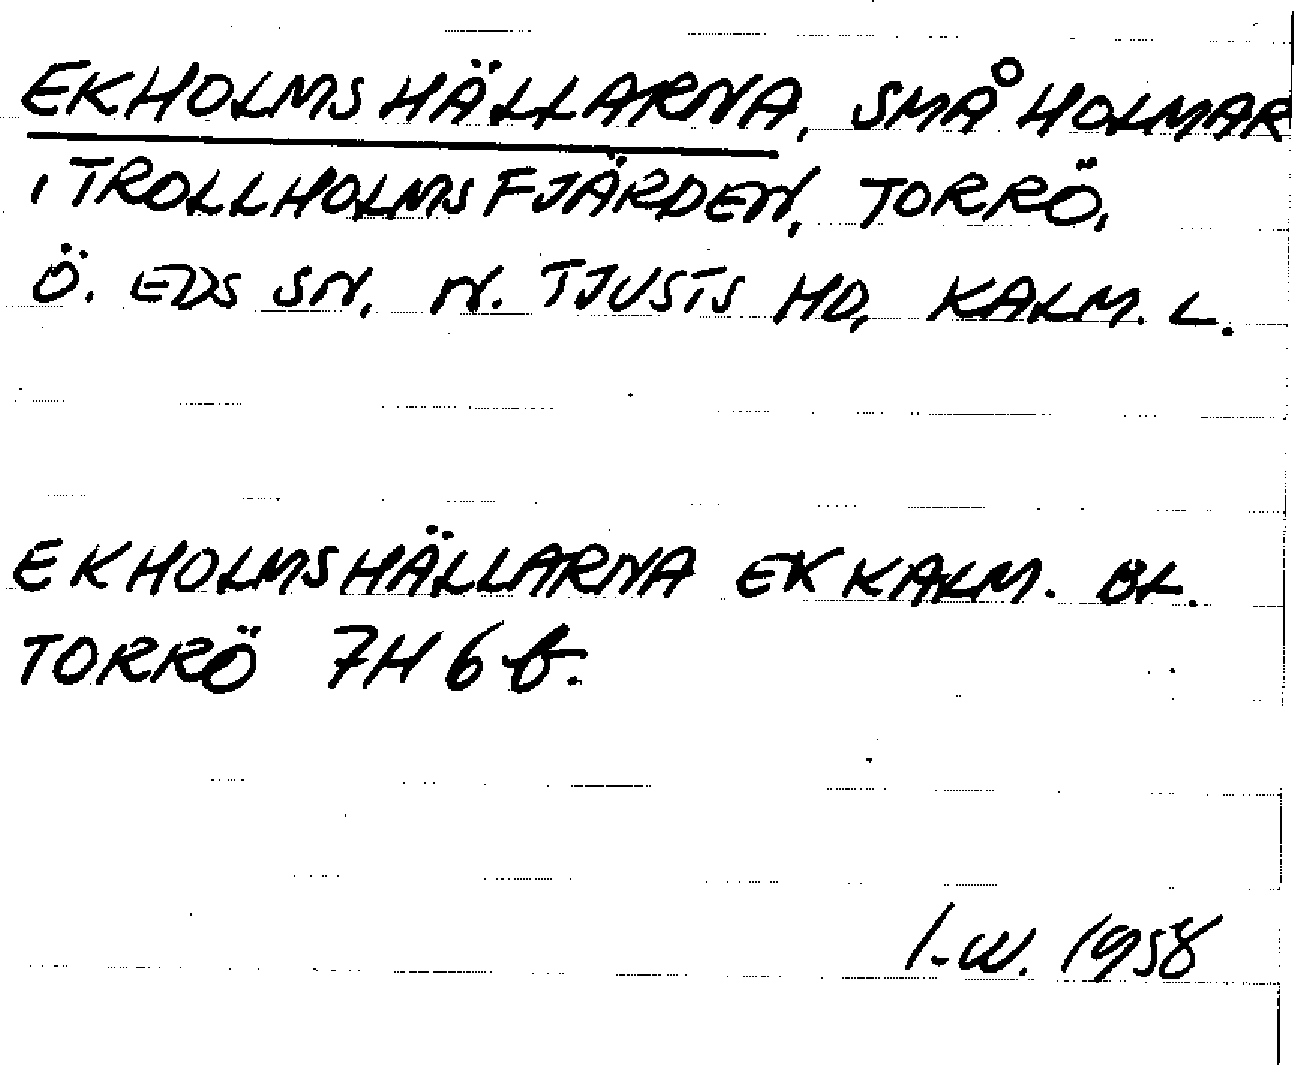 EKHOLMSHÄLLARNA, SMÅ HOLMAR
I TROLLHOLMSFJÄRDEN, TORRÖ,
Ö. EDS SN, N. TJUSTS HD, KALM. L.
EKHOLMSHÄLLARNA EK KALM. BL.
TORRÖ 7H 6 f.
I-W. 1958